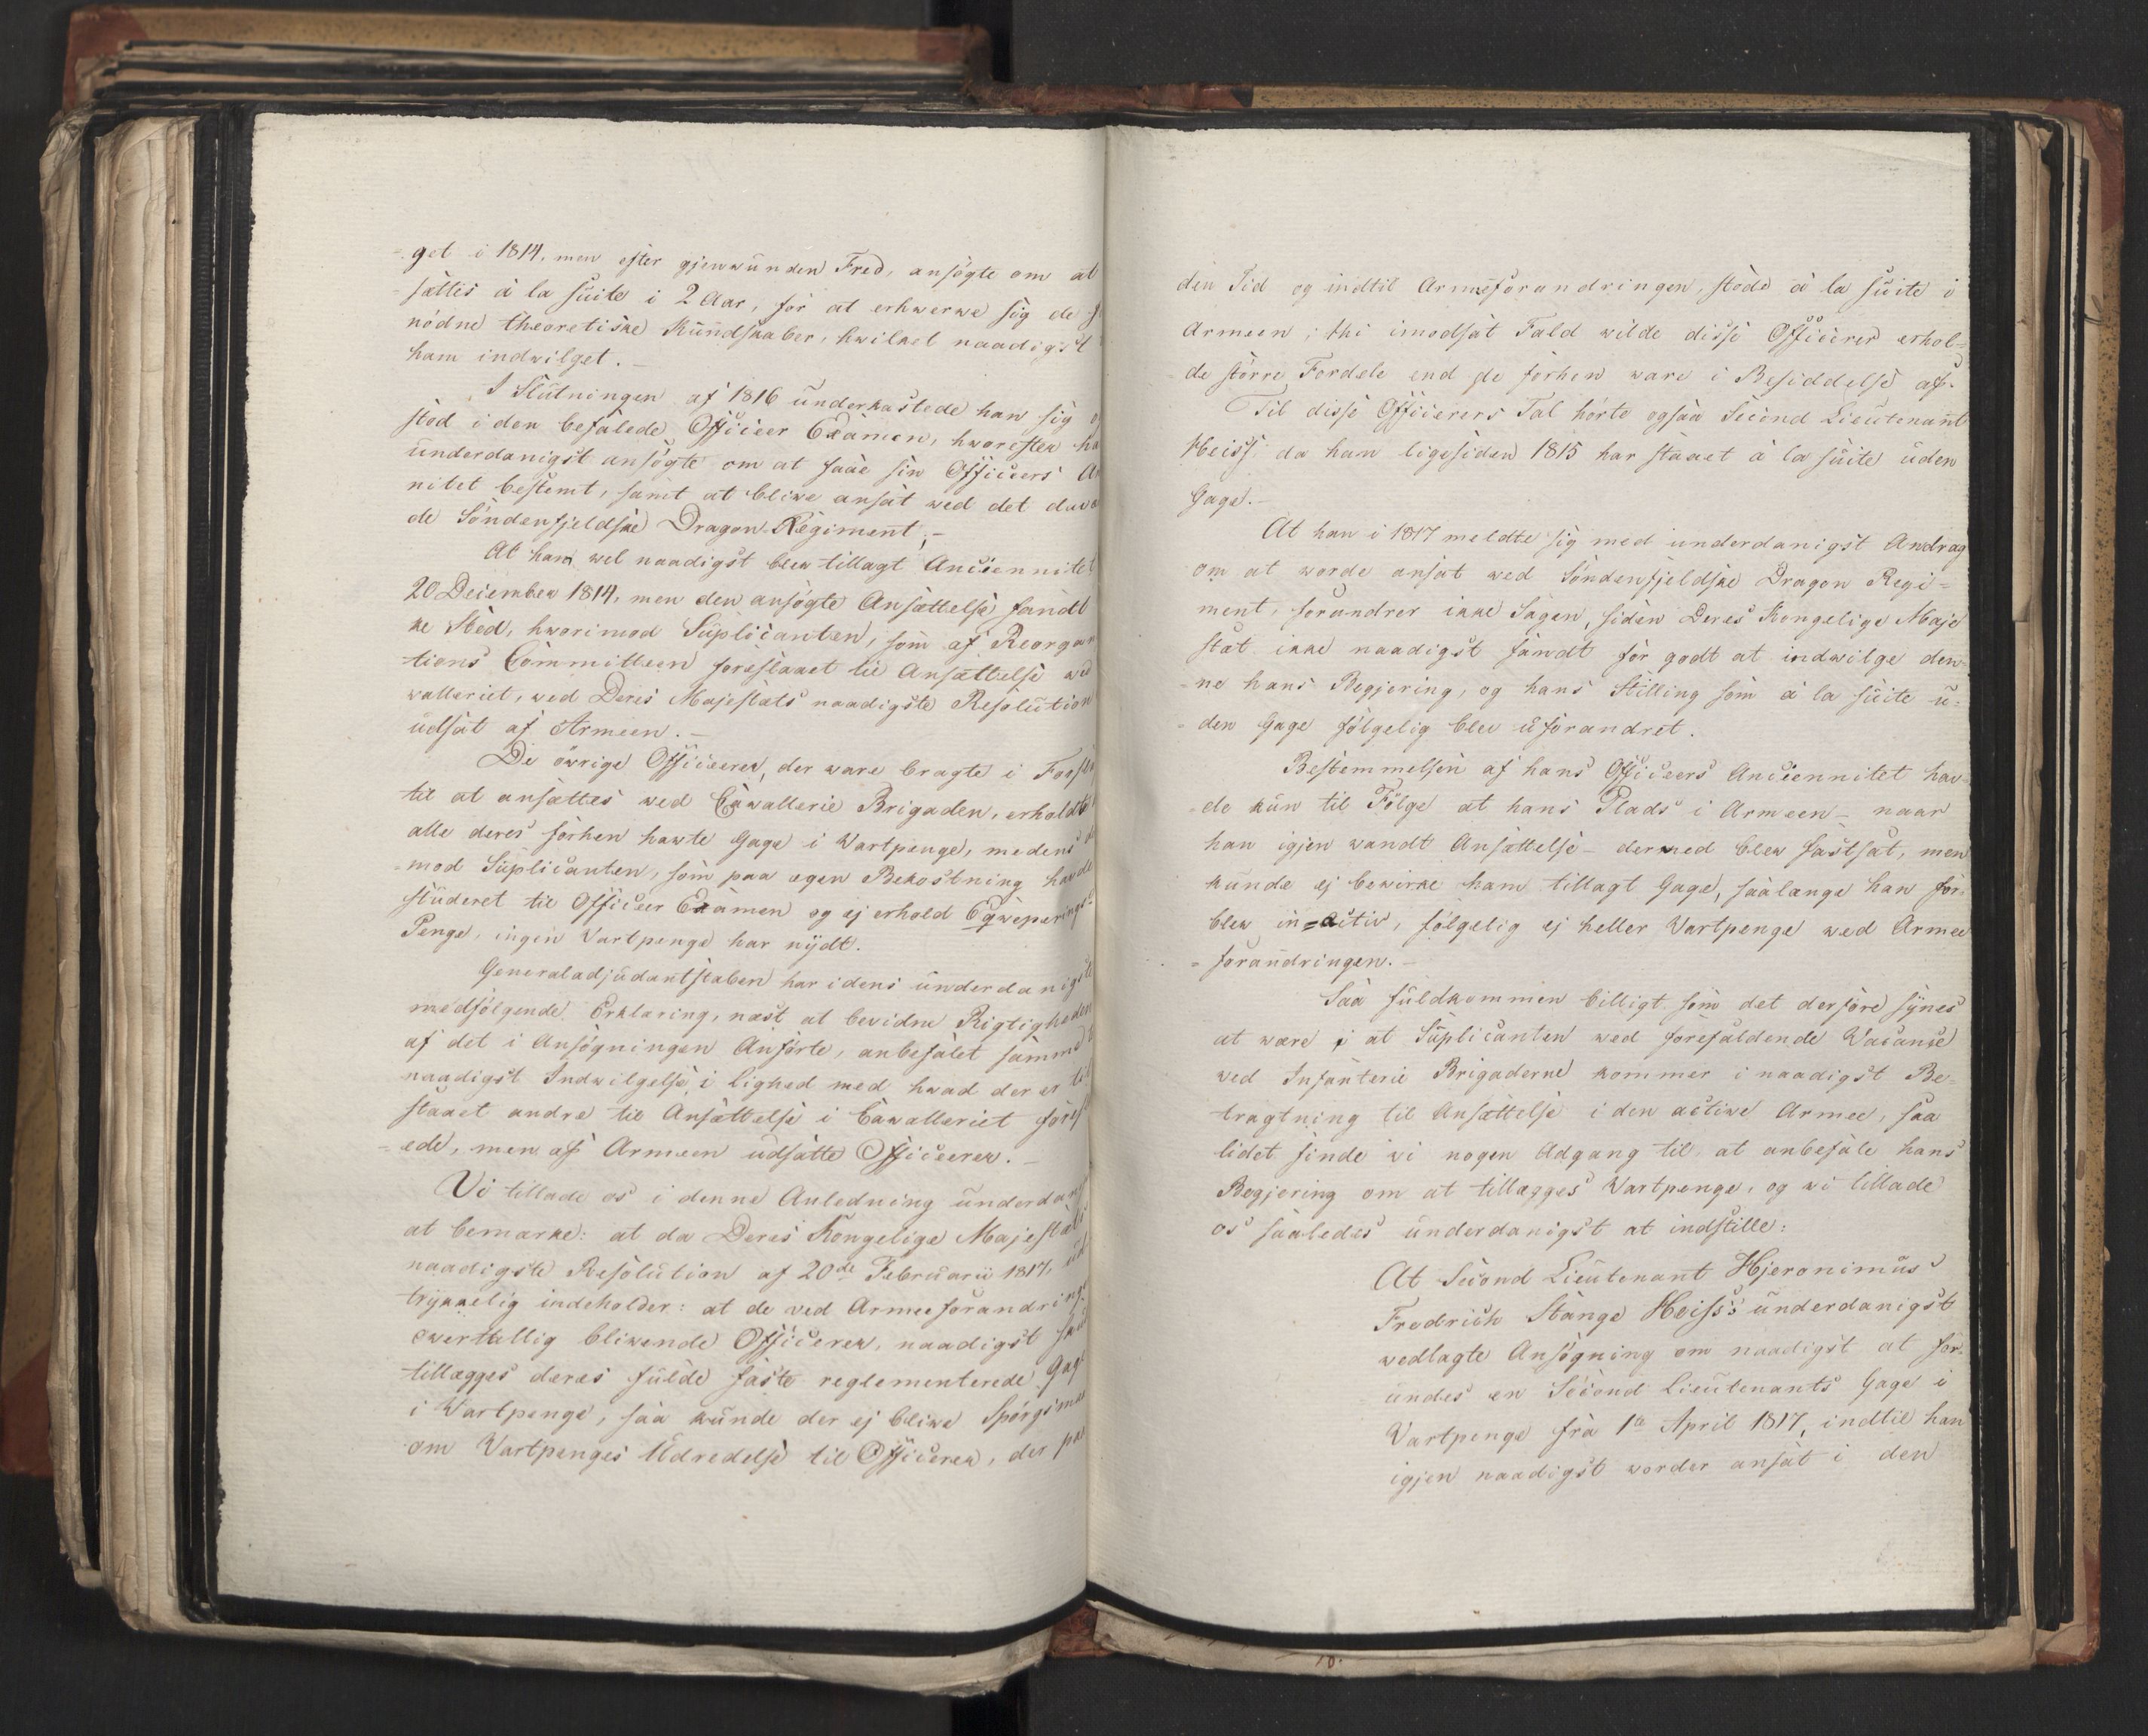 get i 1814, men efter gjenwunden Fred, ansøgte om at
sættes à la suite i 2 Aar, for at erhwerwe sig de
nödne theoretiske Kundskaber, hwilket naadigst
ham indwilget.
I Slutningen af 1816 underkastede han sig
stod i den befalede Officeer Examen, hworefter
underdanigst ansøgte om at faae sin Officeers
nitet bestemt, samt at bliwe ansat wed det
de Söndenfjeldske Dragon-Regiment;-
At ham wel naadigst blew tillagt Anciennitet
20 December 1814, men den ansøgte Ansættelse fandt
ke Sted, hworimod Supplicanten, som af Reorgan
tions Committeen foreslaaet til Ansættelse wed
walleriet, wed Deres Majestæts naadigste Resolution
udsat af Armeen.-
De öwrige Officeerer, der ware bragte i
til at ansættes wed Cawallerie Brigaden, erholdt
alle deres forhen hawte Gage i Wartpenge, medens
mod Suplicanten, som paa egen Bekostning hawde
studeret til Officeer Examen og ej erhold Eqweperings
Penge, ingen Wartpenge har nydt.
Generaladjudantstaben har i dens underdanigste
medfølgende Erklæring, næst at bevidne Rigtigheden
af det i Ansøgningen Anförte, anbefalet samme
naadigst Indwilgelse i Lighed med hwad der er til
staaet andre til Ansættelse i Cawalleriet
ede, men af Armeen udsatte Officeerer.-
Vi tillade os i denne Anledning
at bemærke: at da Deres Kongelige Majestæts
naadigste Resolution af 20de Februarii 1817,
trykkelig indeholder: at de ved Armeeforandringe
owertallig bliwende Officerer, naadigst
tillægges deres fulde faste reglementerede Gage
i Wartpenge, saa kunde der ej bliwe
om Wartpenges Udredelse til Officerer, der paa
den Tid og indtil Armeeforandringen, stode à la suite i
Armeen; thi imodsat Fald wilde disse Officerer erhol-
de större Fordele end de forhen ware i Besiddelse af.
Til disse Officerers Tal hörte ogsaa Second Lieutenant
Heiss, da han ligesiden 1815 har staaet à la suite uden
Gage.-
At han i 1817 meldte sig med underdanigst Andrag
om at worde ansat wed Söndenfjeldske Dragon Regi=
ment, forandrer ikke Sagen, siden Deres Kongelige Maje
stæt ikke naadigst fandt for godt at indwilge den-
ne hans Begjering, og hans Stilling som à la suite u=
den Gage fölgelig blew uforandret.
Bestemmelsen af hans Officeers Anciennitet haw-
de kun til Fölge at hans Plads i Armeen - naar
han igjen wandt Ansættelse - dermed blew fastsat, men
kunde ej bewirke ham tillagt Gage, saalænge han for-
blew in=activ, fölgelig ej heller Wartpenge wed Armee
forandringen.-
Saa fuldkommen billigt som det derfore synes
at wære, at Suplicanten wed forefaldende Vacance
wed Infanterie Brigaderne kommer i naadigst Be-
tragtning til Ansættelse i den active Armee, saa
lidet finde wi nogen Adgang til at anbefale hans
Begjering om at tillægges Wartpenge, og wi tillade
os saaledes underdanigst at indstille:
At Second Lieutenant Hjeronimus
Fredrich Stange Heiss's underdanigst
wedlagte Ansøgning om naadigst at for-
undes en Second Lieutenants Gage i
Wartpenge fra 1te April 1817, indtil han
igjen naadigst worder ansat i den